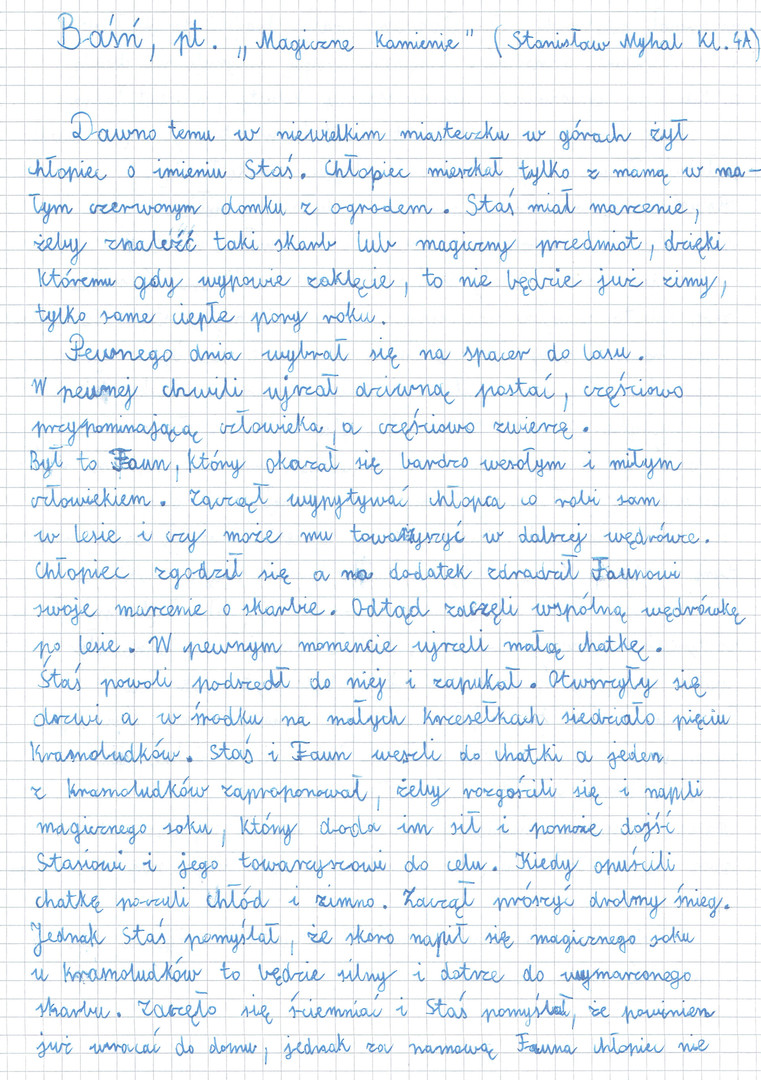 Baśń, pt. „Magiczne Kamienie" (Stanisław Myhal Kl. 4A)
Dawno temu w niewielkim miasteczku w górach żył
chłopiec o imieniu Staś. Chłopiec mieszkał tylko z mamą w ma-
łym czerwonym domku z ogrodem. Staś miał marzenie,
żeby znaleźć taki skarb lub magiczny przedmiot, dzięki
któremu gdy wypowie zaklęcie, to nie będzie już zimy,
tylko same ciepłe pory roku.
Pewnego dnia wybrał się na spacer do lasu.
W pewnej chwili ujrzał dziwną postać, częściowo
przypominającą człowieka, a częściowo zwierzę.
Był to Faun, który okazał się bardzo wesołym i miłym
człowiekiem. Zaczął wypytywać chłopca co robi sam
w lesie i czy może mu towarzyszyć w dalszej wędrówce.
Chłopiec zgodził się a na dodatek zdradził Faunowi
swoje marzenie o skarbie. Odtąd zaczęli wspólną wędrówkę
po lesie. W pewnym momencie ujrzeli małą chatkę.
Staś powoli podszedł do niej i zapukał. Otworzyły się
drzwi a w środku na małych krzesełkach siedziało pięciu
Krasnoludków. Staś i Faun weszli do chatki a jeden
z krasnoludków zaproponował, żeby rozgościli się i napili
magicznego soku, który doda im sił i pomoże dojść
Stasiowi i jego towarzyszowi do celu. Kiedy opuścili
chatkę poczuli chłód i zimno. Zaczął prószyć drobny śnieg.
Jednak Staś pomyślał, że skoro napił się magicznego soku
u krasnoludków to będzie silny i dotrze do wymarzonego
skarbu. Zaczęło się ściemniać i Staś pomyślał, że powinien
już wracać do domu, jednak za namową Fauna chłopiec nie